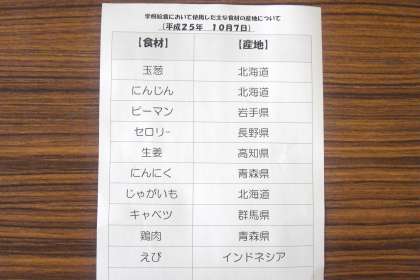 学校給食において使用した主な食材の産地について
(平成25年 10月7日)
【食材】 【産地】
玉葱 北海道
にんじん 北海道
ピーマン 岩手県
セロリー 長野県
生姜 高知県
にんにく 青森県
じゃがいも 北海道
キャベツ 群馬県
鶏肉 青森県
えび インドネシア